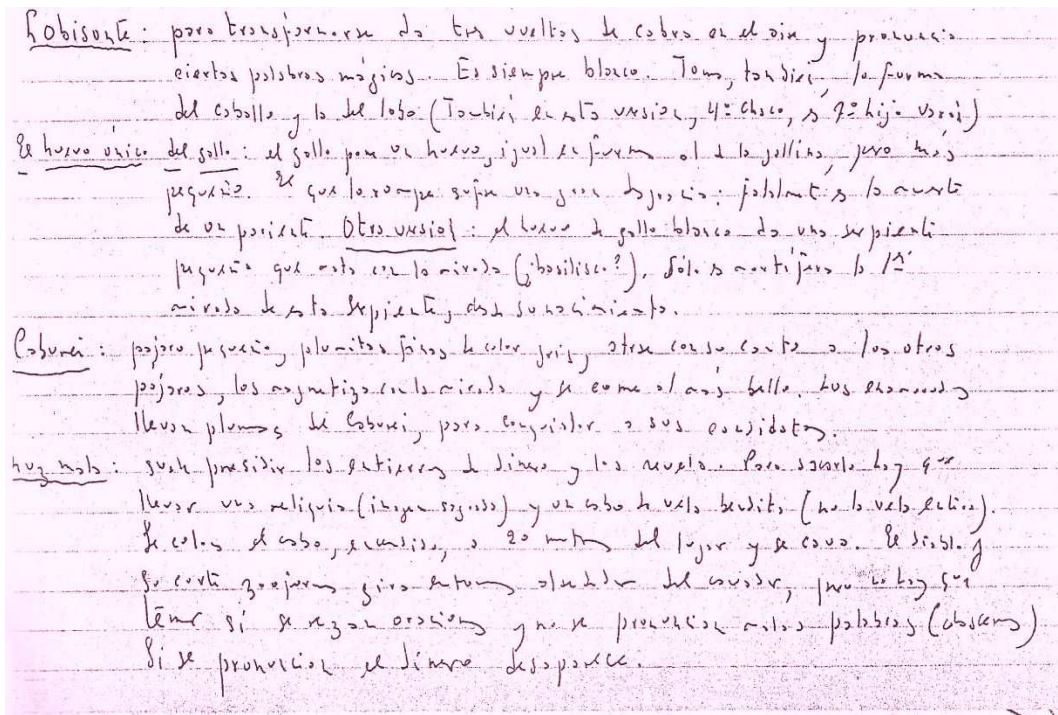 Lobisonte: para transformarse da tres vueltas de cabra en el aire y pronuncia
ciertas palabras mágicas. Es siempre blanco. Toma, también, la forma
del caballo y la del lobo (También en esta versión, 4º Chaco, es 7º hijo varón)
El huevo único del gallo: el gallo pone un huevo, igual en forma al de la gallina, pero más
pequeño. El que lo rompe sufre una gran desgracia: fatalmente es la muerte
de un pariente. Otra versión: el huevo de gallo blanco da una serpiente
pequeña que mata con la mirada (¿basilisco?). Sólo es mortífera la 1ª
mirada de esta serpiente, desde su nacimiento.
Caburei: pájaro pequeño, plumitas finas de color gris, atrae con su canto a los otros
pájaros, los magnetiza con la mirada y se come al más bello. Los enamorados
llevan plumas del Caburei, para conquistar a sus candidatas.
Luz mala: suele presidir los entierros de dinero y los revela. Para sacarlo hay que
llevar una reliquia (imagen sagrada) y un cabo de vela bendita (no la vela entera).
Se coloca el cabo, encendido, a 20 metros del lugar y se cava. El diablo y
su corte giran en torno alrededor del cavador, pero no hay que
temer si se rezan oraciones y no se pronuncian malas palabras (obscenas)
Si se pronuncian el dinero desaparece.